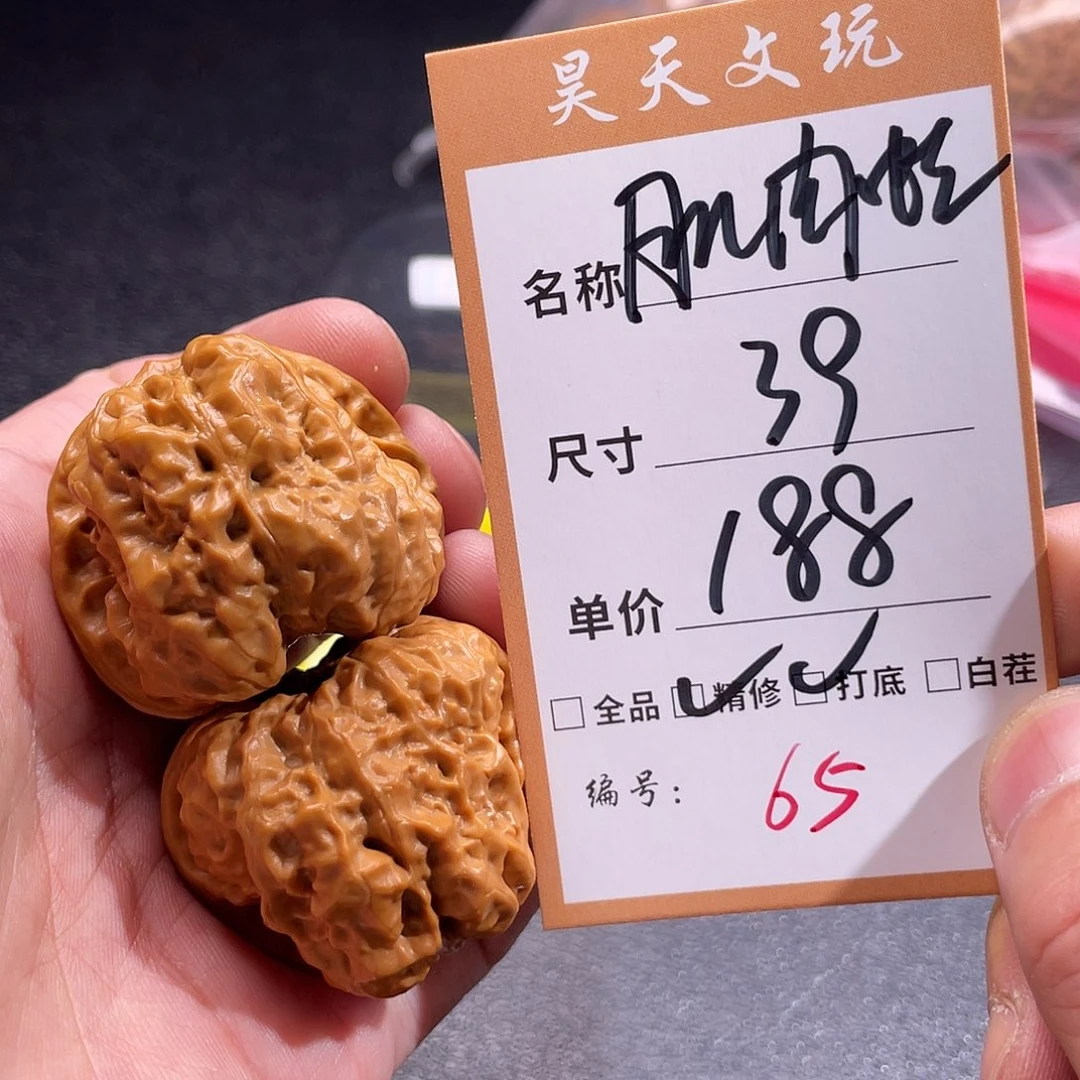 昊天文玩
名称 肌肉蛇
尺寸 39
单价 188
全品 精修 打底 白茬
编号: 65